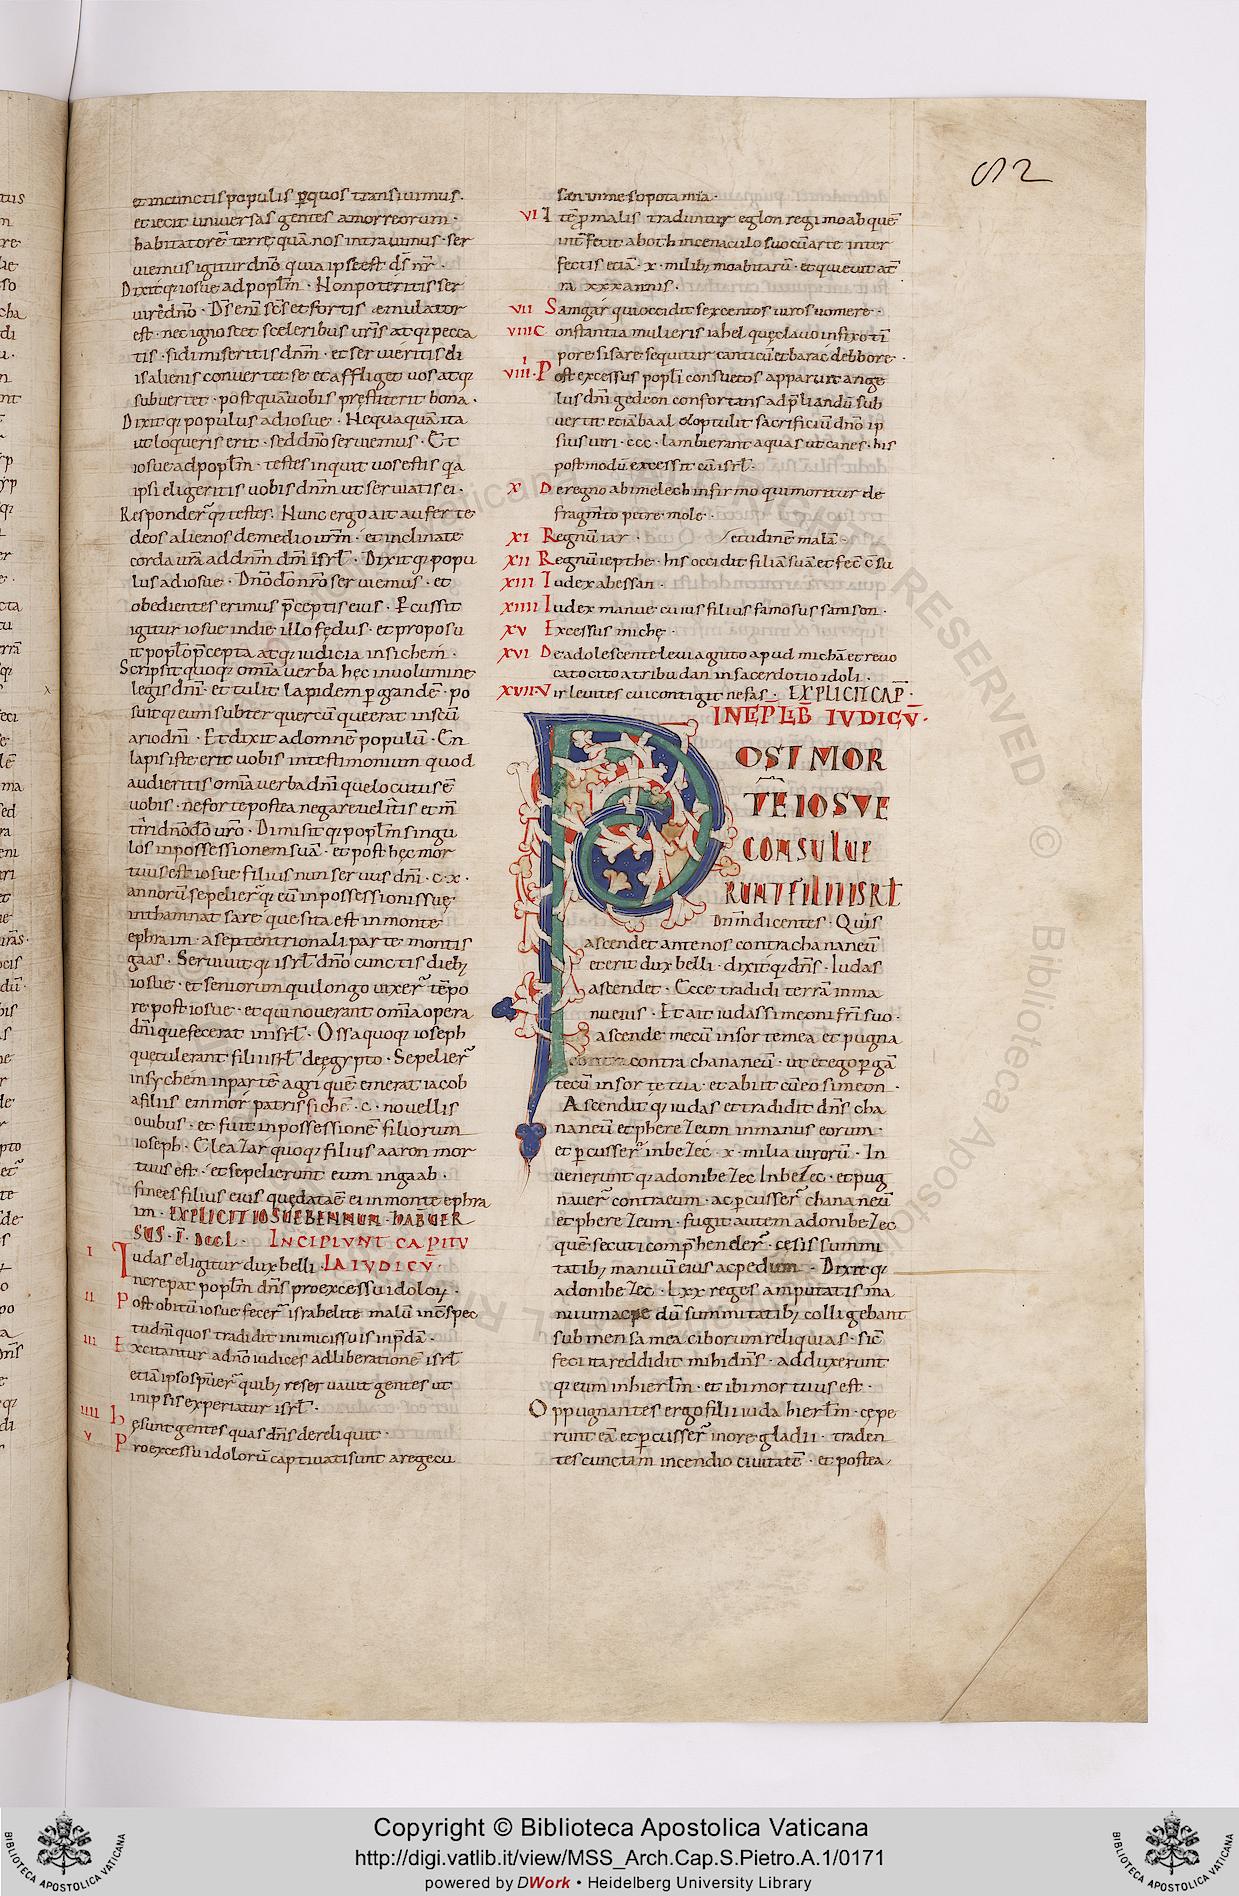 et in cunctis populis ꝑ quos transivimus ·
et iecit universas gentes amorreorum ·
habitatorē terrę quā nos intravimus · ser
viemus igitur dn̄o quia ipse est ds̄ nr̄ ·
Dixit q; iosue ad popl̄m · Non poteritis ser
vire dn̄o · Ds̄ enī sc̄s et fortis emulator
est · nec ignoscet sceleribus vr̄is atq; pecca
tis · si dimiseritis dnm̄ · et servieritis di
is alienis convertet se et affliget vos atq;
subvertet · post quā vobis pręstiterit bona ·
Dixit q; populus ad iosue · Nequaquā ita
ut loqueris erit · sed dn̄o serviemus · Et
iosue ad popl̄m · testes inquit vos estis q̄a
ipsi eligeritis vobis dnm̄ ut serviatis ei ·
Responder̄ q; testes · Nunc ergo ait auferte
deos alienos de medio vrm̄ · et inclinate
corda vr̄a ad dnm̄ dm̄ isrł · Dixit q; popu
lus ad iosue · Dn̄o dō nr̄o serviemus · et
obedientes erimus p̄ceptis eius · Percussit
igitur iosue in die illo fędus · et proposu
it popl̄o p̄cepta atq; iudicia in sichem ·
Scripsit quoq; omīa verba hęc in volumine
legis dn̄i · et tulit lapidem ꝑgrandē · po
suit q; eum subter quercū que erat in scū
ario dn̄i · Et dixit ad omnē populū · En
lapis iste erit vobis in testimonium quod
audieritis omīa verba dn̄i que locutus ē
vobis · ne forte postea negare velitis et m̄
tiri dn̄o dō vr̄o · Dimisit q; popl̄m singu
los in possessionem suā · et post hęc mor
tuus est iosue filius nun servus dn̄i · c · x ·
annorū sepelier̄ q; eū in possessionis suę
in thamnat sare que sita est in monte
ephraim · a septentrionali parte montis
gaas · Servivit q; isrł dn̄o cunctis dieb;
iosue · et seniorum qui longo vixer̄ tēpo
re post iosue · et qui noverant omīa opera
dn̄i que fecerat in isrł · Ossa quoq; ioseph
que tulerant filii isrł de ęgypto · Sepelier̄
in sychem in partē agri quē emerat iacob
a filiis emmor patris sichē · c · novellis
ovibus · et fuit in possessionē filiorum
ioseph · Eleazar quoq; filius aaron mor
tuus est · et sepelierunt eum in gaab ·
finees filius eius quę data ē ei in monte ephra
im · EXPLICIT IOSUE BENNUN · HABUER
SUS · Ī · DCCL · INCIPIUNT CAPITU
I Iudas eligitur dux belli · LA IUDICŪ ·
Increpat popl̄m dn̄s pro excessu idoloꝝ ·
II Post obitū iosue fecer̄ israhelite malū in c̄spec
tu dn̄i quos tradidit inimicis suis in p̄dā ·
III Excitantur a dn̄o iudices ad liberationē isrł
etiā ipsos p̄uer̄ quib; reservavit gentes ut
in ipsis experiatur isrł ·
IIII Hę sunt gentes quas dn̄s dereliquit ·
V Pro excessu idolorū captivati sunt a rege cu
san in mesopotamia ·
VI Itē ꝑ malis traduntur eglon regi moab quē
int̄fecit aboth in cenaculo suo cū arte inter
fectis etiā · x · milib; moabitarū · et quievit at̄
ra xxx annis ·
VII Samgar qui occidit sexcentos viros vomere ·
VIII Constantia mulieris iahel quę clavo infixo tī
pore sisare sequitur canticū et barac debbore ·
VIIII Post excessus popl̄i consuetos apparuit ange
lus dn̄i gedeon confortans ad p̄liandū sub
vertit etiā baal & optulit sacrificiū dn̄o ip
sius viri · ccc · lambierant aquas ut canes · his
postmodū excessit cū isrł ·
X De regno abimelech infirmo qui moritur de
fragmto petre mole ·
XI Regnū iar · / etudinē malā ·
XII Regnū iepthe · his occidit filiā suā et fec̄ c̄su
XIII Iudex abessan ·
XIIII Iudex manue cuius filius famosus samson ·
XV Excessus michę ·
XVI De adolescente levi agnito apud michā et revo
cato cito a tribu dan in sacerdotio idoli ·
XVII Vir levites cui contigit nefas · EXPLICIT CAP̄ ·
INCP̄ LIB̄ IUDICŪ ·
POST MOR
TĒ IOSUE
CONSULUE
RUNT FILII ISRŁ
Dnm̄ dicentes · Quis
ascendet ante nos contra chananeū
et erit dux belli · dixit q; dn̄s · Iudas
ascendet · Ecce tradidi terrā in ma
nu eius · Et ait iudas simeoni fr̄i suo ·
ascende mecū in sortem ea et pugna
contra contra chananeū · ut et ego ꝑgā
tecū in sorte tua · et abiit cū eo simeon ·
Ascendit q; iudas et tradidit dn̄s cha
naneū et pherezeum in manus eorum ·
et ꝑcusser̄ in bezec · x · milia virorū · In
venerunt q; adonibezec in bezec · et pug
naver̄ contra eum · ac ꝑcusser̄ chananeū
et pherezeum · fugit autem adonibezec
quē secuti comp̄henderˉ · cęsis summi
tatib; manuū eius ac pedum · Dixit q;
adonibezec · Lxx reges amputatis ma
nuum ac pedū summitatib; colligebant
sub mensa mea ciborum reliquias · sic̄
feci ita reddidit mihi dn̄s · adduxerunt
q; eum in hierl̄m · et ibi mortuus est ·
Oppugnantes ergo filii iuda hierl̄m · cepe
runt eā et ꝑcusser̄ in ore gladii · traden
tes cunctam incendio civitatē · et postea
Copyright © Biblioteca Apostolica Vaticana
http://digi.vatlib.it/view/MSS_Arch.Cap.S.Pietro.A.1/0171
powered by DWork • Heidelberg University Library
BIBLIOTECA APOSTOLICA VATICANA
BIBLIOTECA APOSTOLICA VATICANA